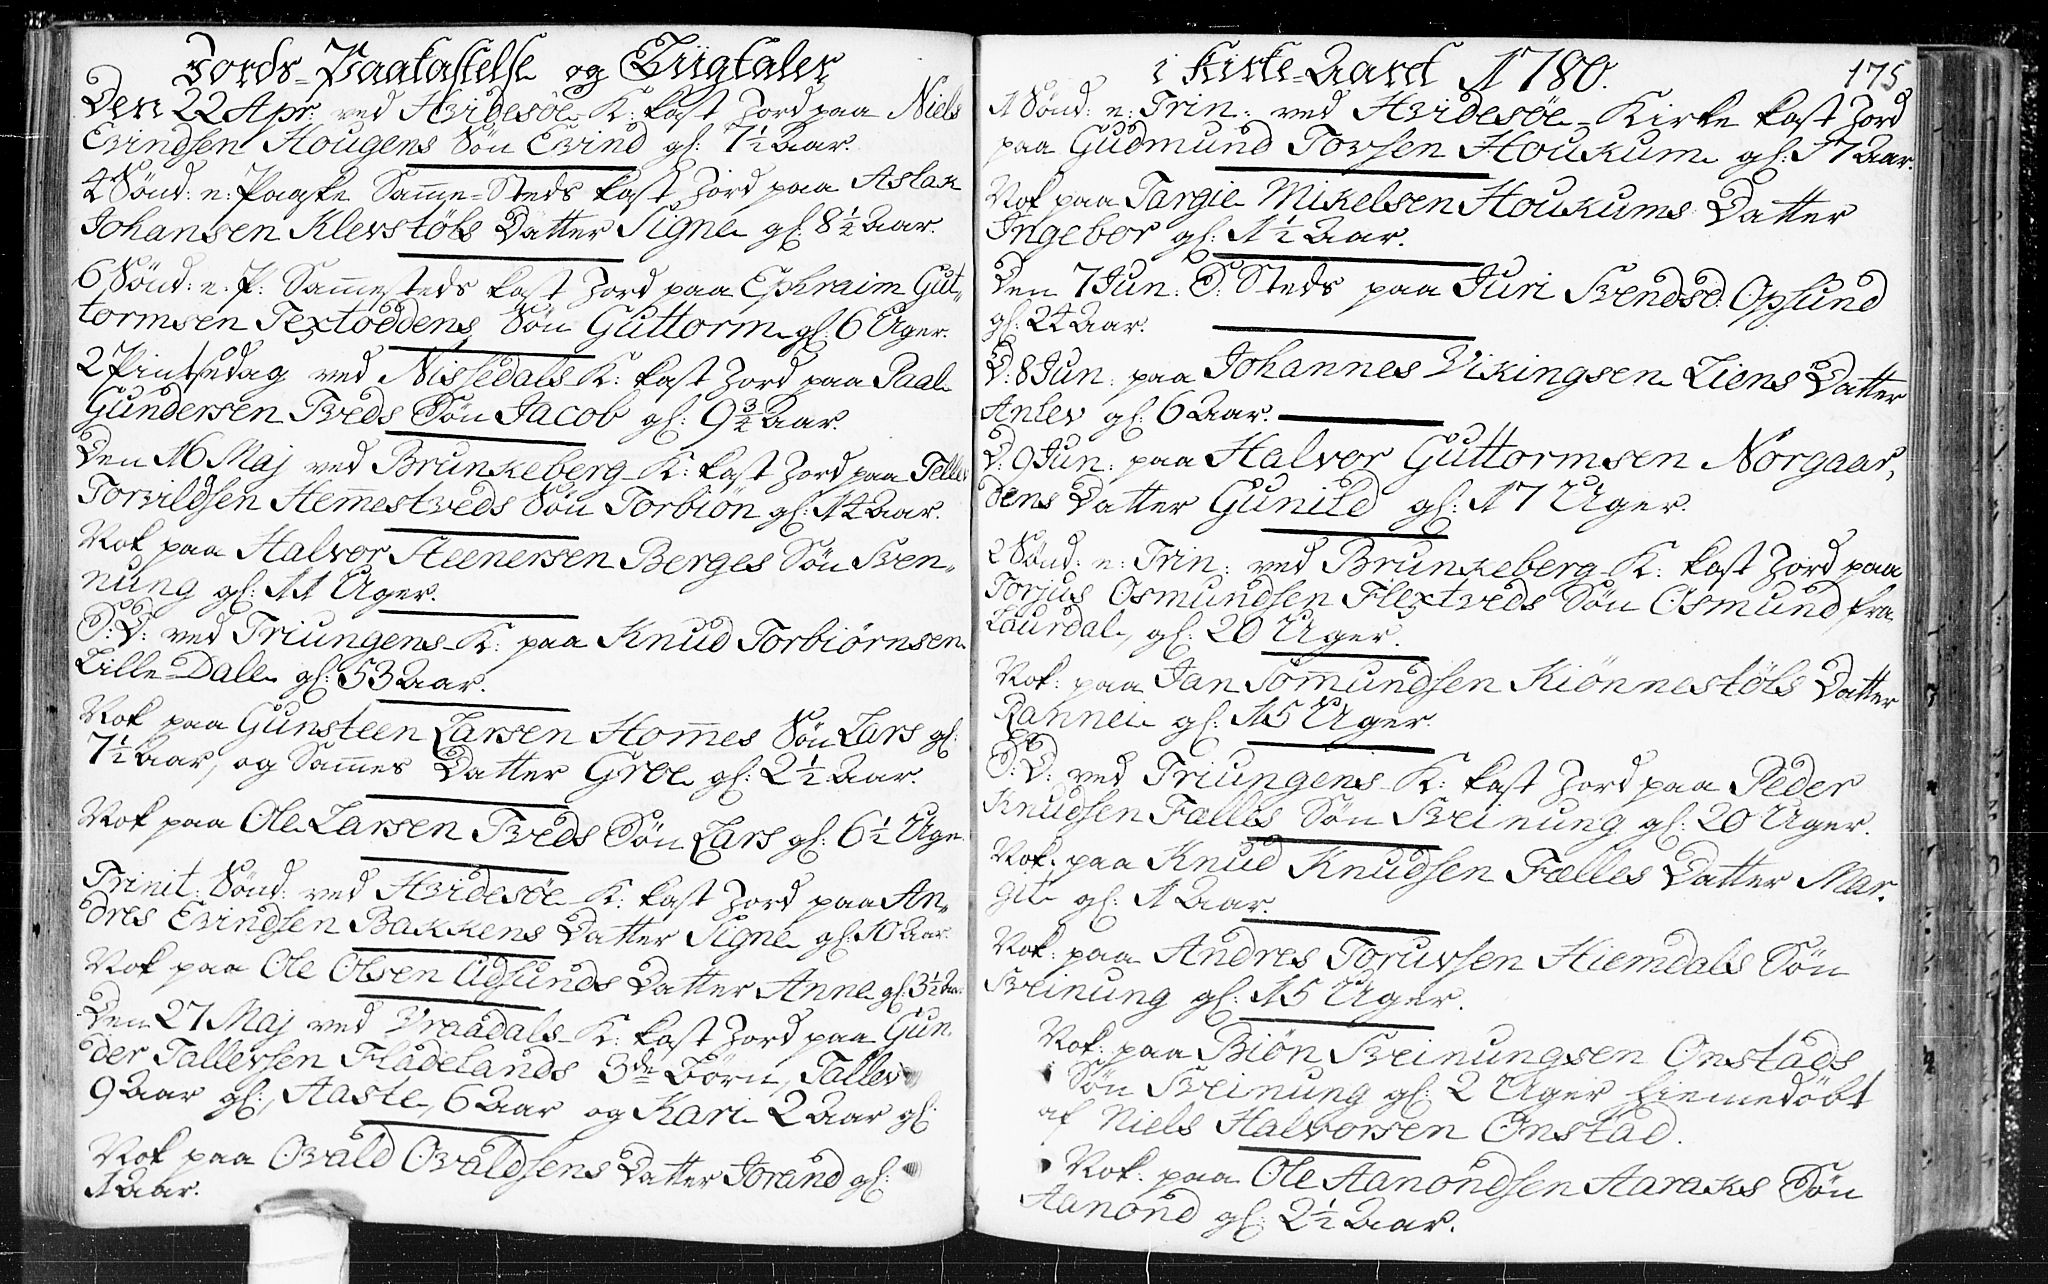 Jords-Paakastelse og Liigtaler
Den 22 Apr: ved Hvidesöe K: kast Jord paa Niels
Evindsen Hougens Sön Evind gl: 7½ Aar.
4 Sönd: e: Paaske Samme-Steds kast Jord paa Aslak
Johansen Klevstöls Datter Signe gl: 8½ Aar.
6 Sönd: e: P: Sammesteds kast Jord paa Ephraim Gut-
tormsen Textoddens Sön Guttorm gl: 6 Uger.
2 Pintsedag ved Nissedals K: kast Jord paa Paal
Gundersen Tveds Sön Jacob gl: 9¾ Aar.
Den 16 Maj ved Brunkeberg K: kast Jord paa Tellev
Torvildsen Hemmestveds Sön Torbiön gl: 14 Aar.
Nok paa Halvor Steenersen Berges Sön Sven-
nung gl: 11 Uger.
S: D: ved Triungens K: paa Knud Torbiörnsen
Lille-Dale gl: 53 Aar.
Nok paa Gunsteen Larsen Hommes Sön Lars gl:
7½ Aar, og Sammes Datter Groe gl: 2½ Aar.
Nok paa Ole Larsen Tveds Sön Lars gl: 6½ Uge.
Trinit: Sönd: ved Hvidesöe K: kast Jord paa An-
dres Evindsen Bakkens Datter Signe gl: 10 Aar.
Nok paa Ole Olsen Udsunds Datter Anne gl: 3½ Aar.
Den 27 Maj ved Vraadals K: kast Jord paa Gun-
der Tallevsen Fladelands 3de Börn, Tallev
9 Aar gl:, Aaste, 6 Aar og Kari 2 Aar gl:
Nok paa Ovald Ovaldsens Datter Jorand gl:
1 Aar.
i Kirke-Aaret 1780. 175
1 Sönd: e: Trin: ved Hvidesöe Kirke kast Jord
paa Gudmund Tovsen Houkum gl: 17 Aar.
Nok paa Targie Mikelsen Houkums Datter
Ingebor gl: 1½ Aar.
Den 7 Jun: S: Steds paa Juri Svendsd: Opsund
gl: 24 Aar.
D: 8 Jun: paa Johannes Vikingsen Liens Datter
Anlev gl: 6 Aar.
D: 9 Jun: paa Halvor Guttormsen Norgaar-
dens Datter Gunild gl: 17 Uger.
2 Sönd: e: Trin: ved Brunkeberg K: kast Jord paa
Torjus Osmundsen Flextveds Sön Osmund fra
Laurdal, gl: 20 Uger.
Nok: paa Jan Sommundsen Kiönnestöls Datter
Rannei gl: 15 Uger.
S: D: ved Triungens K: kast Jord paa Peder
Knudsen Fælles Sön Sveinung gl: 20 Uger.
Nok: paa Knud Knudsen Fælles Datter Mar-
git gl: 1 Aar.
Nok: paa Andres Toruvsen Hiemdals Sön
Sveinung gl: 15 Uger.
Nok: paa Biön Sveinungsen Onstads
Sön Sveinung gl: 2 Uger hiemedöbt
af Niels Halvorsen Onstad.
Nok: paa Ole Aanondsen Aaraks Sön
Aanond gl: 2½ Aar.